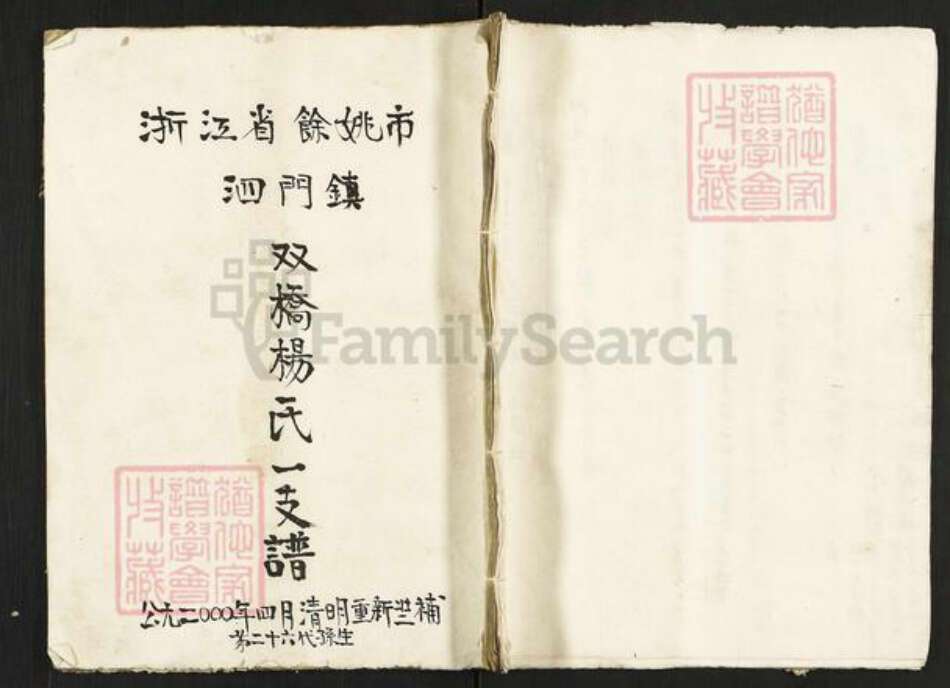 浙江省餘姚市
泗門鎮
双橋楊氏一支譜
公元二000年四月清明重新 補
第二十六代孫生
猶他家譜學會收藏
猶他家譜學會收藏
FamilySearch